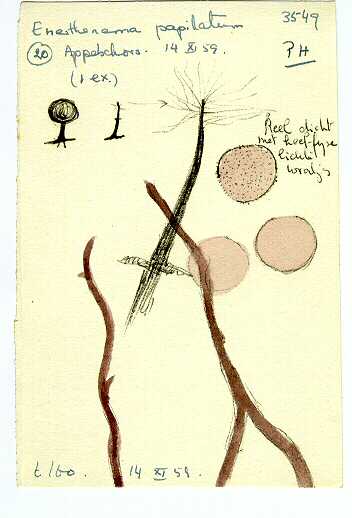 Enerthenema papillatum 3549
20 Appelscha. 14 XI 59. PH
(1 ex.)
Heel dicht
met heel fijne
lichte
wratjes
14 XI 59.